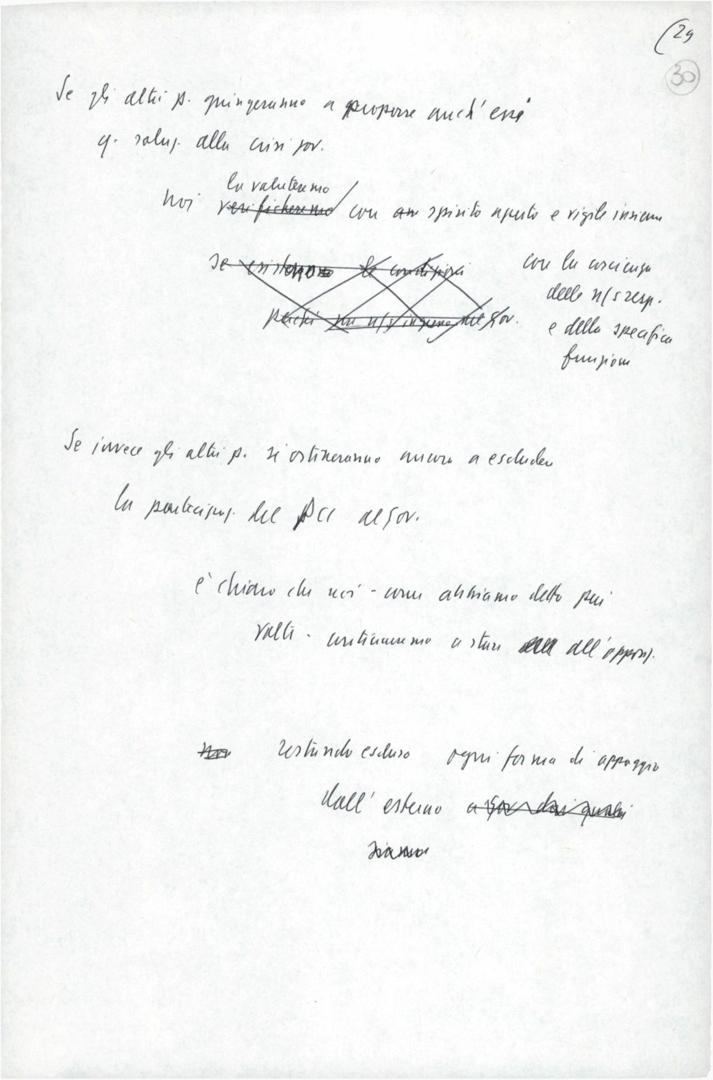 (29
30
Se gli altri p. giungeranno a proporre anch'essi
q. soluz. alla crisi gov.
la valuteremo
noi verificheremo con spirito aperto e vigile insieme
se esistono le condizioni
perché un n/s ingresso nel gov.
con la coscienza
delle n/s resp.
e della specifica
funzione
Se invece gli altri p. si ostineranno ancora a escludere
la partecipaz. del PCI al gov.
è chiaro che noi - come abbiamo detto più
volte - continueremo a stare all'oppos.
restando escluso ogni forma di appoggio
dall'esterno a gov. dai quali
siamo